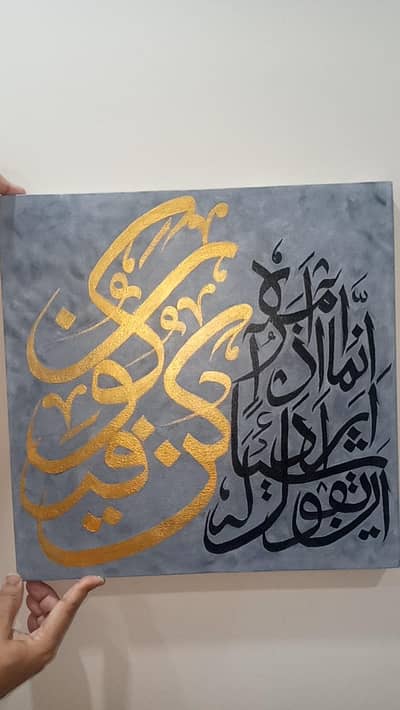 إنما أمره إذا
أراد شيئا
أن يقول له
كن فيكون